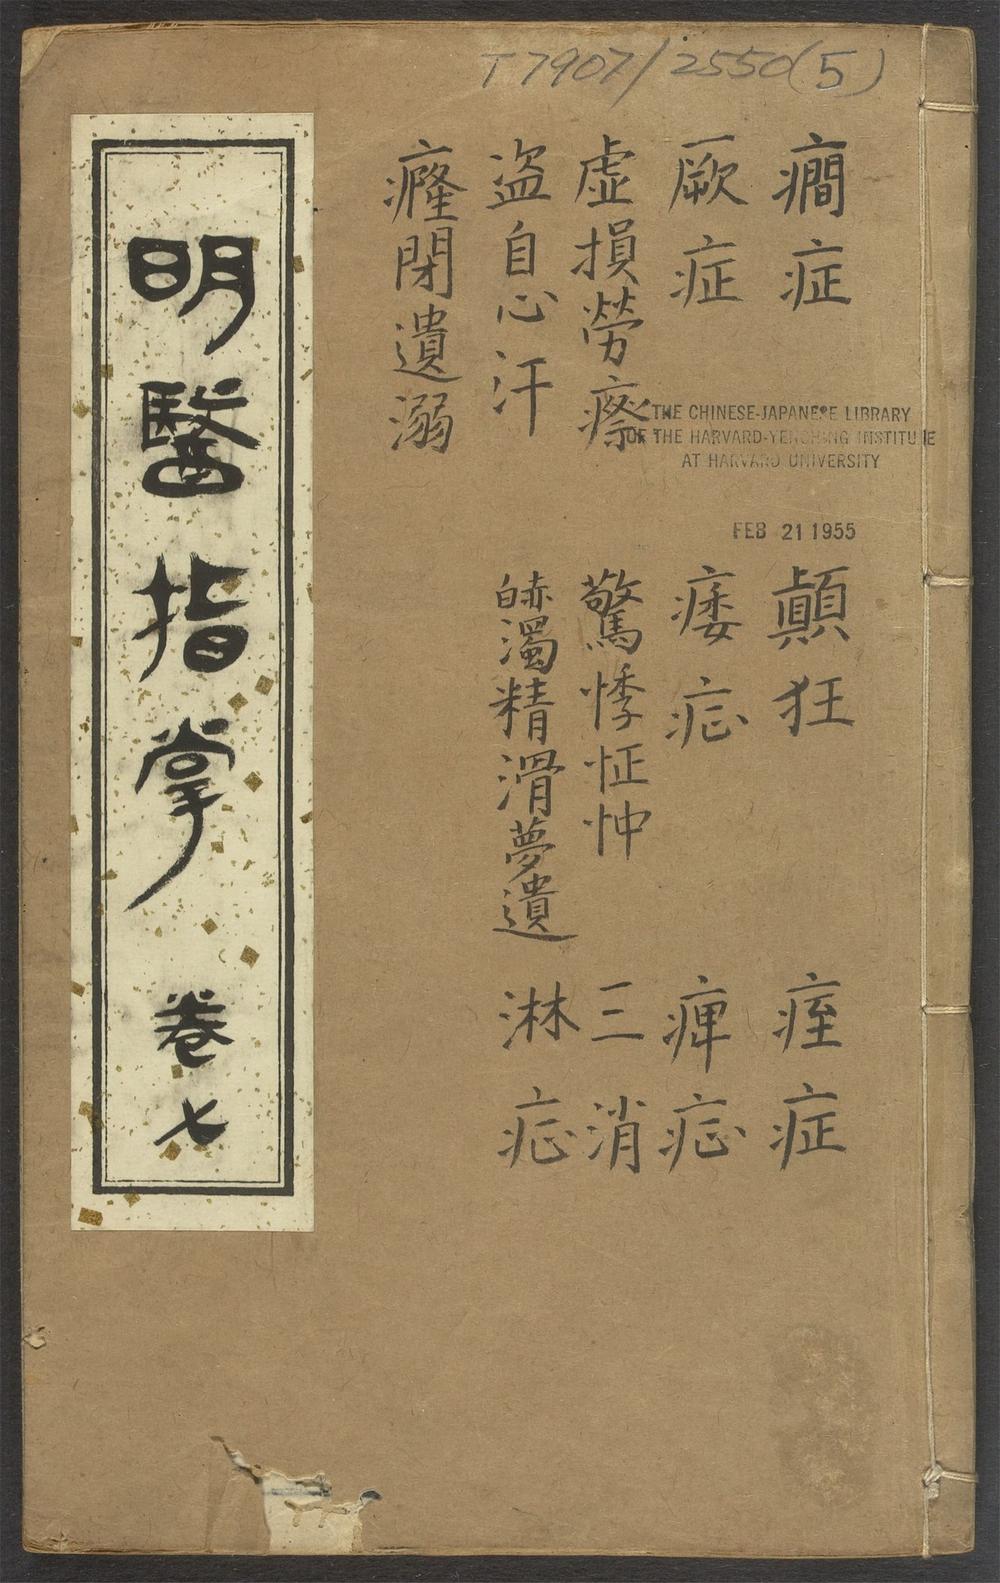 T7907/2550(5)
癎症 顚狂 痓症
厥症 痿症 痺症
虛損勞瘵 驚悸怔忡 三消
盜自心汗 赤白濁精滑夢遺 淋症
癃閉遺溺
明醫指掌 卷七
THE CHINESE-JAPANESE LIBRARY
OF THE HARVARD-YENCHING INSTITUTE
AT HARVARD UNIVERSITY
FEB 21 1955